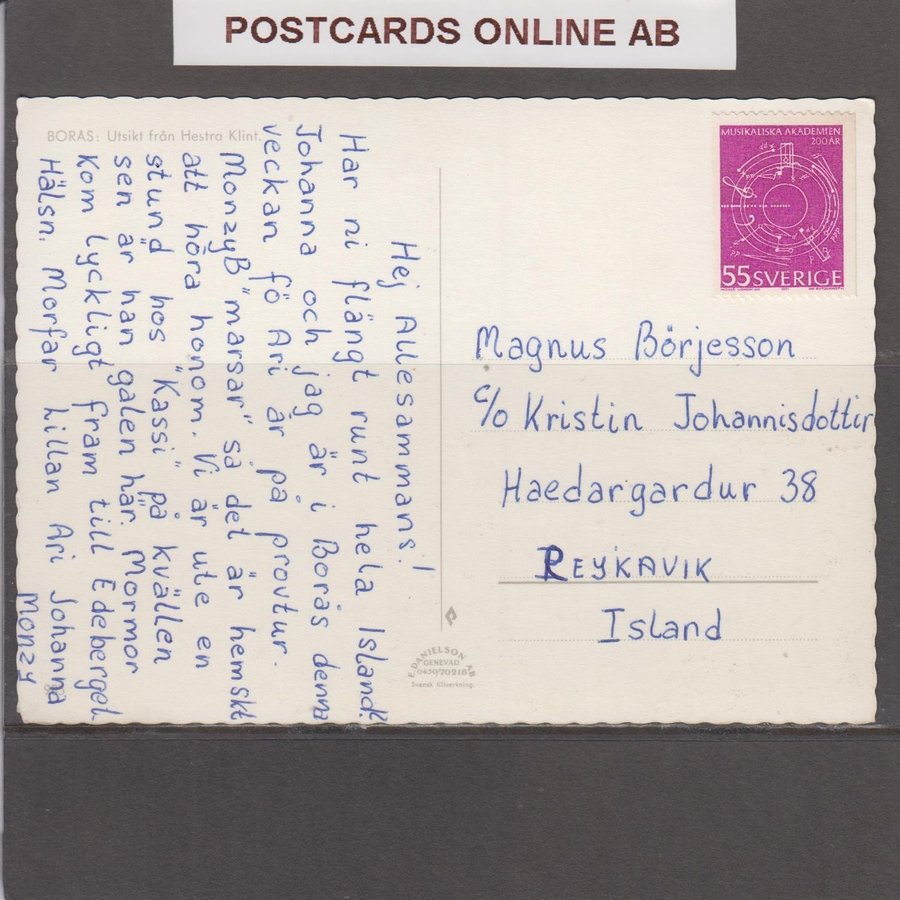 POSTCARDS ONLINE AB
BORÅS: Utsikt från Hestra Klint.
Hej Allesammans!
Har ni flängt runt hela Island?
Johanna och jag är i Borås denna
veckan fö Ari är på provtur.
MonzyB "marsar" så det är hemskt
att höra honom. Vi är ute en
stund hos "Kassi" på kvällen
sen är han galen här. Mormor
kom lyckligt fram till Edeberget
Hälsn. Morfar Lillan Ari Johanna
Monzy
MUSIKALISKA AKADEMIEN
200 ÅR
55 SVERIGE
Magnus Börjesson
c/o Kristin Johannisdottir
Haedargardur 38
REYKAVIK
Island
E. DANIELSON AB
GENEVAD
0430/70218
Svensk tillverkning